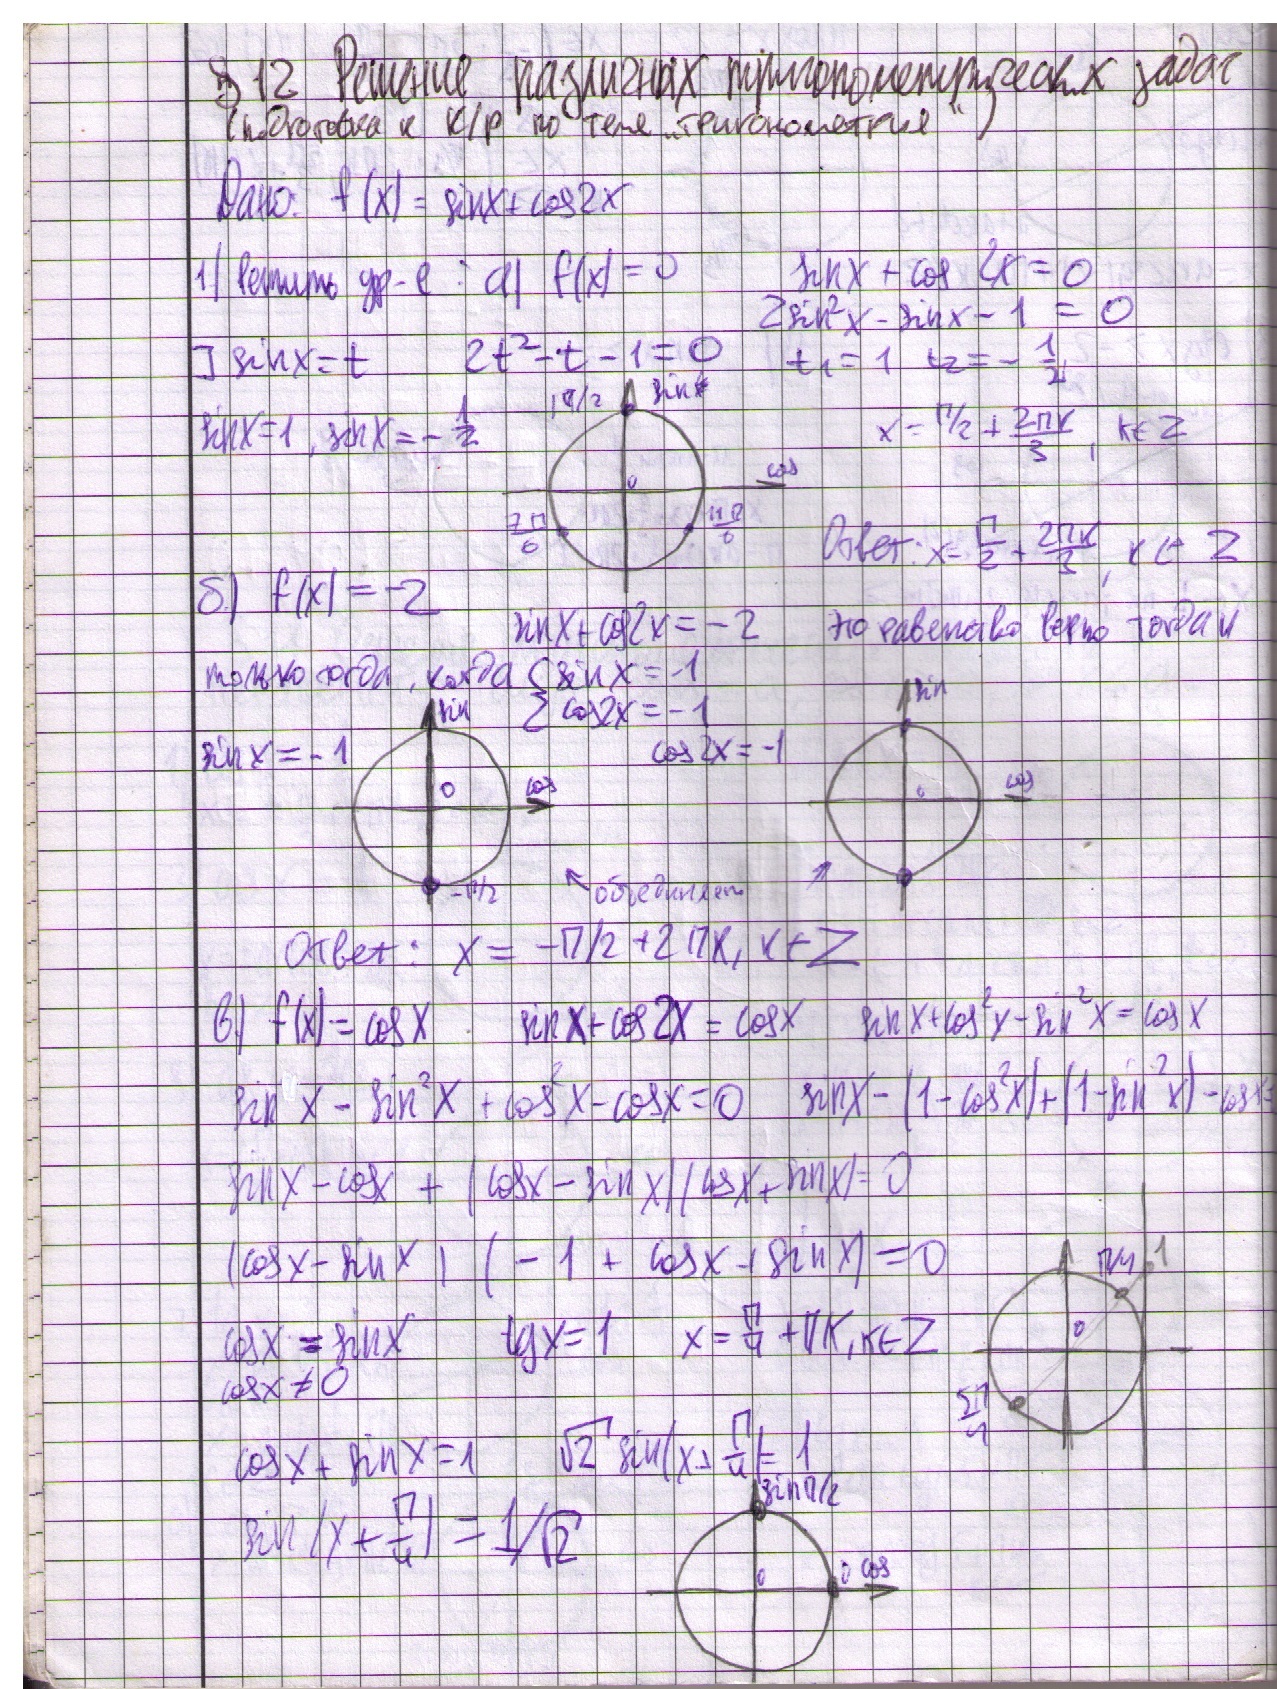 §12 Решение различных тригонометрических задач
(подготовка к к/р по теме „тригонометрия“)
Дано: f(x) = sinx+cos2x
1) Решить ур-е: а) f(x)=0 sinx + cos 2x = 0
2sin²x - sinx - 1 = 0
] sinx = t 2t² - t - 1 = 0 t₁ = 1 t₂ = - 1/2
π/2 sinx
sinx=1, sinx = - 1/2 x = π/2 + 2πk/3, k∈Z
cos
0
7π/6 11π/6
Ответ: x = π/2 + 2πk/3, k∈Z
б) f(x) = -2
sinx+cos2x = -2 это равенство верно тогда и
только тогда, когда { sinx = -1
cos2x = -1
sin sin
sinx = -1 cos2x = -1
0 cos 0 cos
-π/2 объединяем
Ответ: x = -π/2 + 2πk, k∈Z
в) f(x) = cosx sinx+cos2x = cosx sinx+cos²x-sin²x = cosx
sin x - sin²x + cos²x - cosx = 0 sinx - (1-cos²x)+(1-sin²x) - cosx=
sinx - cosx + (cosx - sinx)(cosx + sinx) = 0
(cosx - sinx) (-1 + cosx + sinx) = 0
π/4 1
cosx = sinx tgx = 1 x = π/4 + πk, k∈Z
0
cosx ≠ 0
5π/4
cosx + sinx = 1 √2 sin(x + π/4) = 1
sin π/2
sin(x + π/4) = 1/√2
0 0 cos